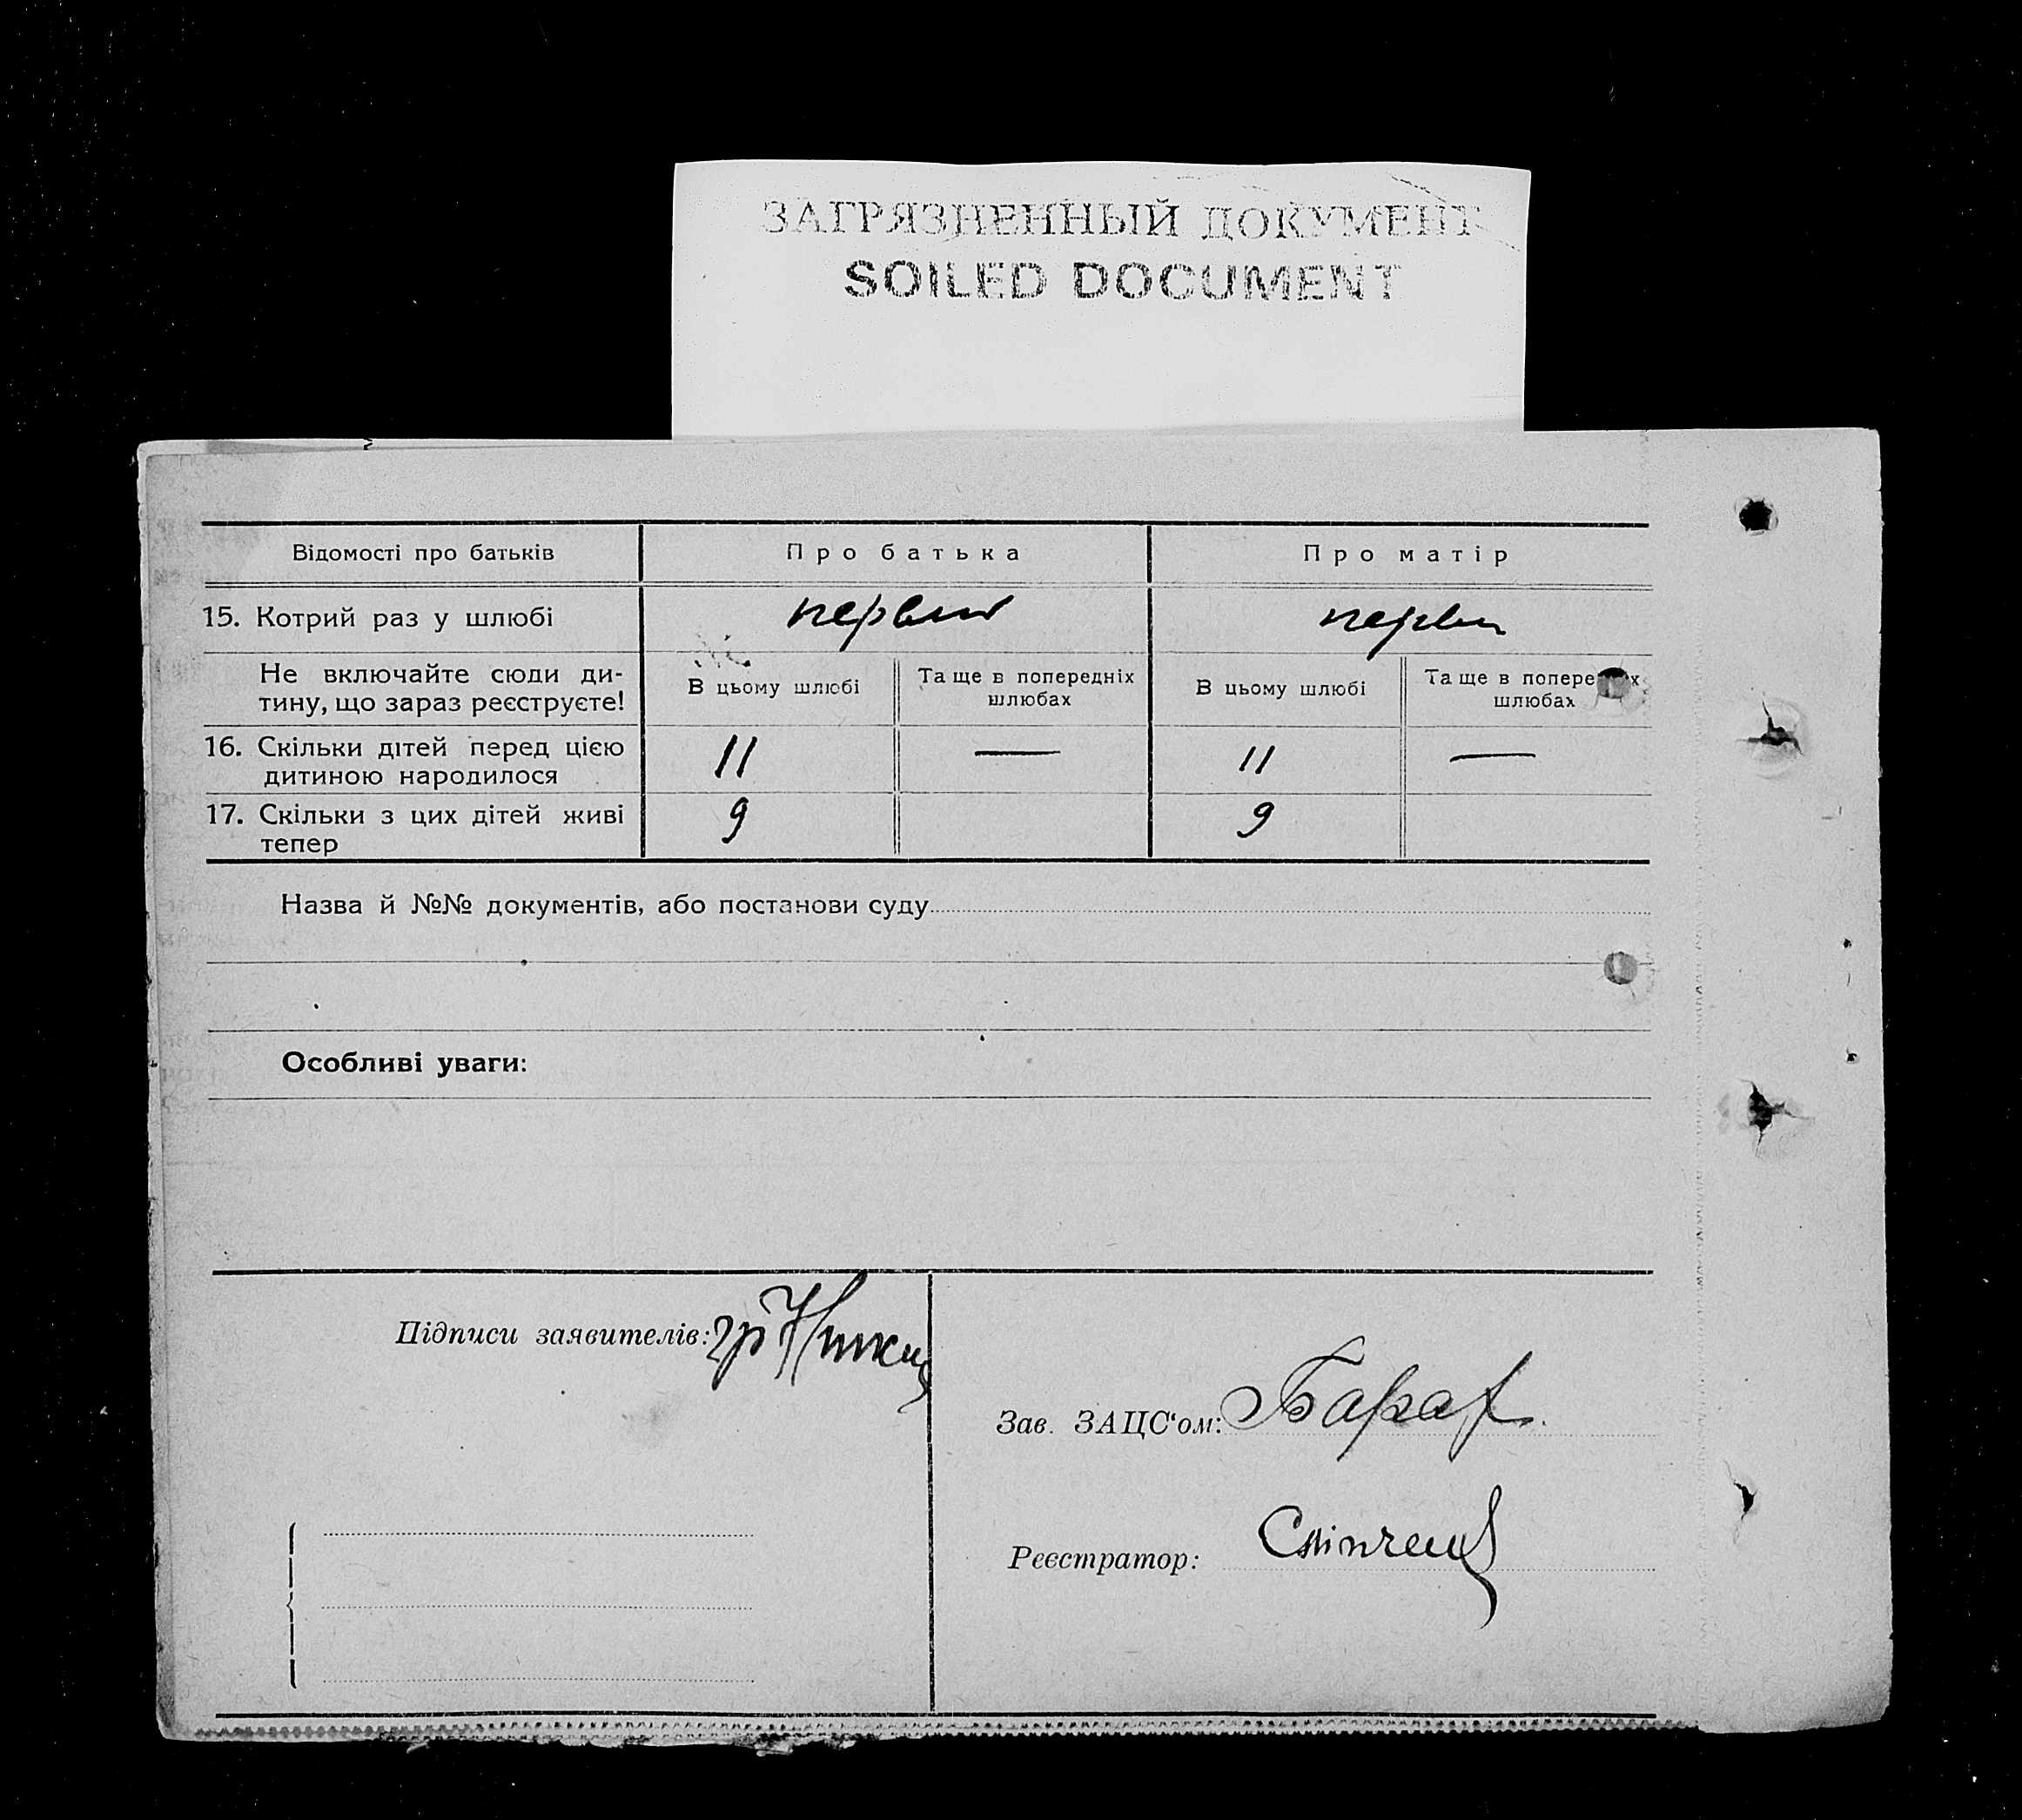 ЗАГРЯЗНЕННЫЙ ДОКУМЕНТ
SOILED DOCUMENT
Відомості про батьків Про батька Про матір
15. Котрий раз у шлюбі
Не включайте сюди ди-
тину, що зараз реєструєте!
В цьому шлюбі Та ще в попередніх
шлюбах
В цьому шлюбі Та ще в
шлюбах
16. Скільки дітей перед цією
дитиною народилося
11 — 11 —
17. Скільки з цих дітей живі
тепер
9 9
Назва й №№ документів, або постанови суду
Особливі уваги:
Підписи заявителів: гр
Зав. ЗАЦС'ом:
Реєстратор: